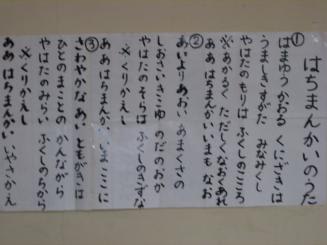 はちまんかいのうた
①
はまゆう かおる くにざきは
うましきすがた みなみくし
やはたのもりは ふくしのこころ
※あかるく ただしく なおくあれ
ああ はちまんかい いまも なお
②
あいより あおい あまくさの
しおさい きこゆ のだのおか
やはたのそらは ふくしのきずな
※くりかえし
ああ はちまんかい いま ここに
③
さわやかな あい ともがきは
ひとの まことの かんながら
やはたのみらい ふくしのちから
※くりかえし
ああ はちまんかい いやさかえ